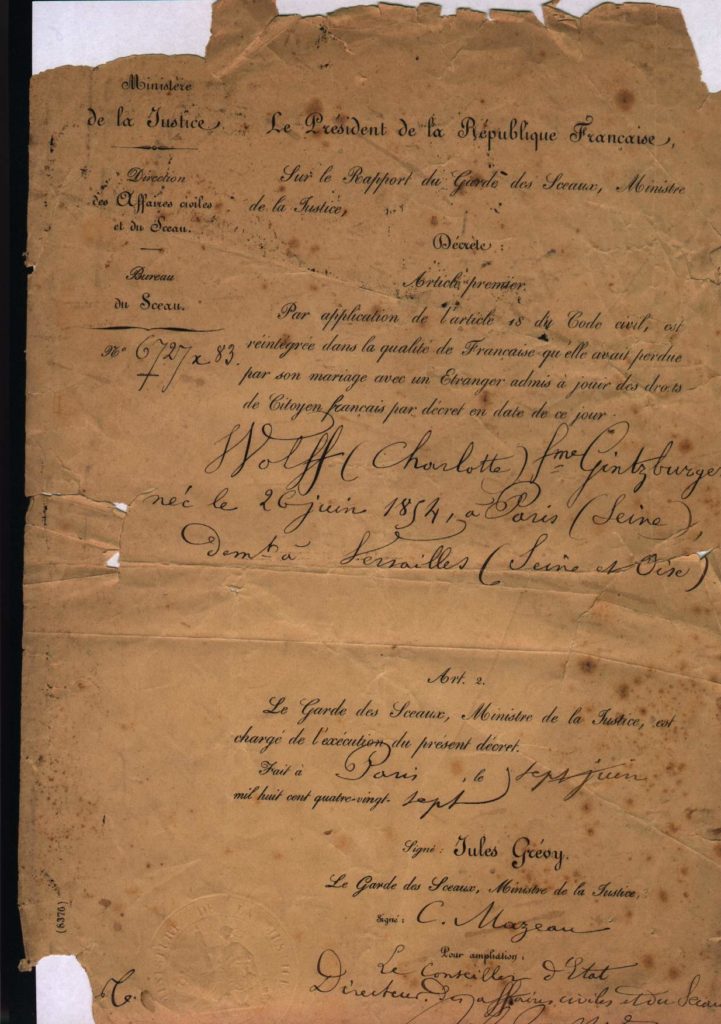 Ministère
de la Justice
Direction
des Affaires civiles
et du Sceau.
Bureau
du Sceau.
N° 6727 x 83
Le Président de la République Française,
Sur le Rapport du Garde des Sceaux, Ministre
de la Justice,
Décrète :
Article premier.
Par application de l'article 18 du Code civil, est
réintégrée dans la qualité de Française qu'elle avait perdue
par son mariage avec un Etranger admis à jouir des droits
de Citoyen français par décret en date de ce jour.
Wolff (Charlotte) fme Gintzburger
née le 26 juin 1854, à Paris (Seine),
demt à Versailles (Seine et Oise)
Art. 2.
Le Garde des Sceaux, Ministre de la Justice, est
chargé de l'exécution du présent décret.
Fait à Paris, le sept juin
mil huit cent quatre-vingt- sept
Signé : Jules Grévy.
Le Garde des Sceaux, Ministre de la Justice,
Signé : C. Mazeau
Pour ampliation :
Le Conseiller d'Etat
Directeur des affaires civiles et du Sceau
(8376)